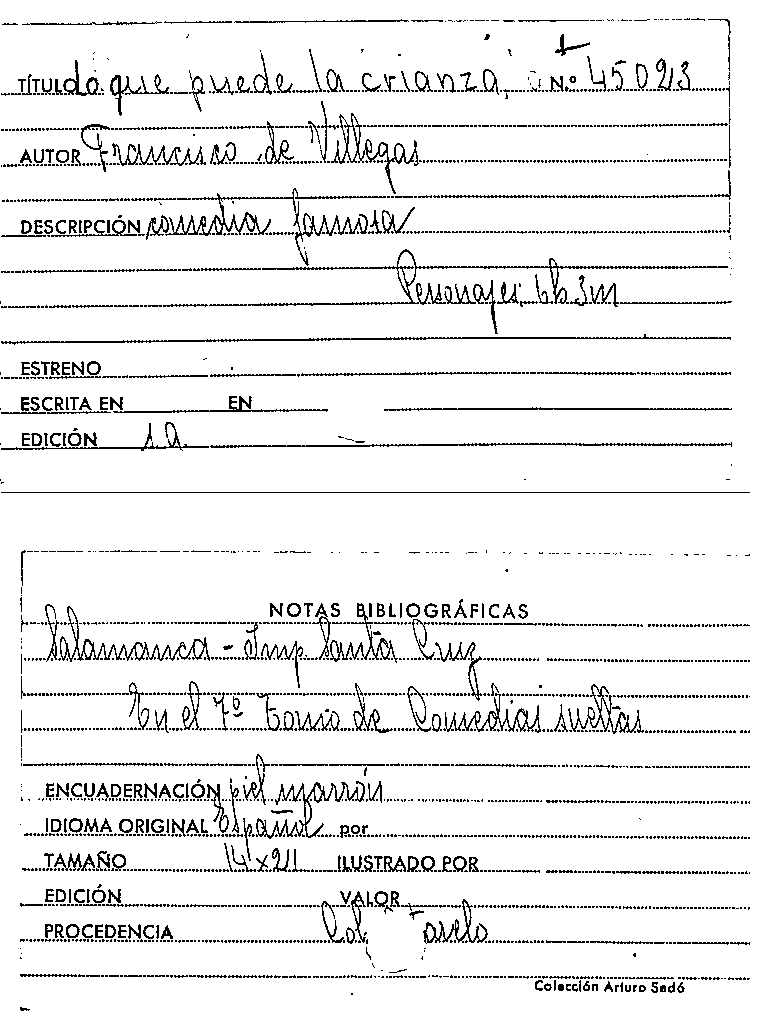 TÍTULO Lo que puede la crianza, Nº 45023
AUTOR Francisco de Villegas
DESCRIPCIÓN comedia famosa
Personajes: 6h 3m
ESTRENO
ESCRITA EN EN
EDICIÓN s.a.
NOTAS BIBLIOGRÁFICAS
Salamanca - Imp. Santa Cruz
En el 7º tomo de Comedias sueltas
ENCUADERNACIÓN piel marrón
IDIOMA ORIGINAL Español por
TAMAÑO 14 x 21 ILUSTRADO POR
EDICIÓN VALOR
PROCEDENCIA Col.
Colección Arturo Sedó